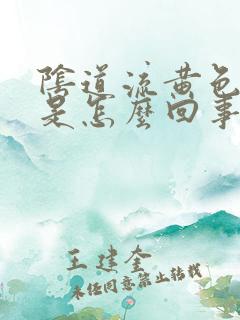 陰道流黄色
是怎麼回事
王建奎
未经同意禁止转载